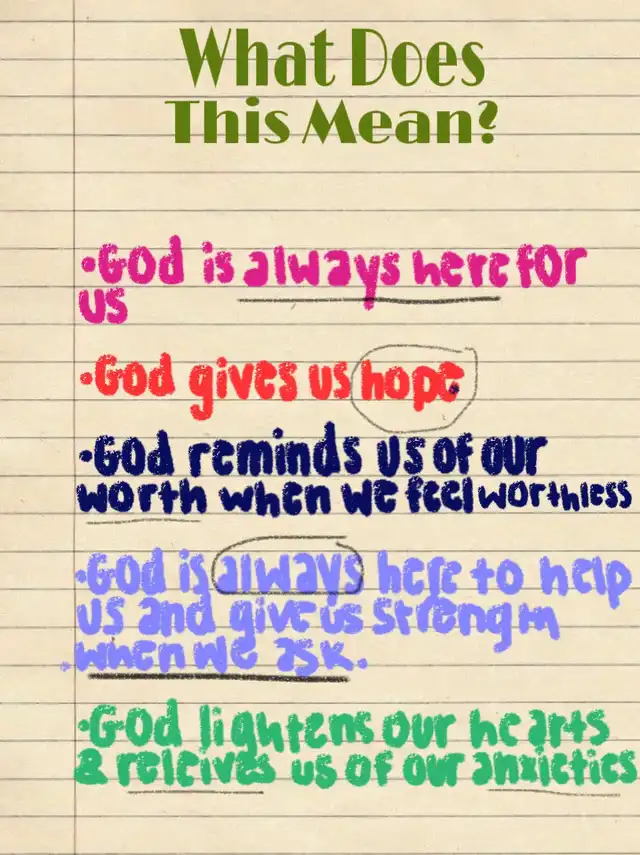 What Does
This Mean?
•God is always here for
us
•God gives us hope
•God reminds us of our
worth when we feel worthless
•God is always here to help
us and give us strengm
when we ask.
•God lightens our hearts
& releives us of our anxieties